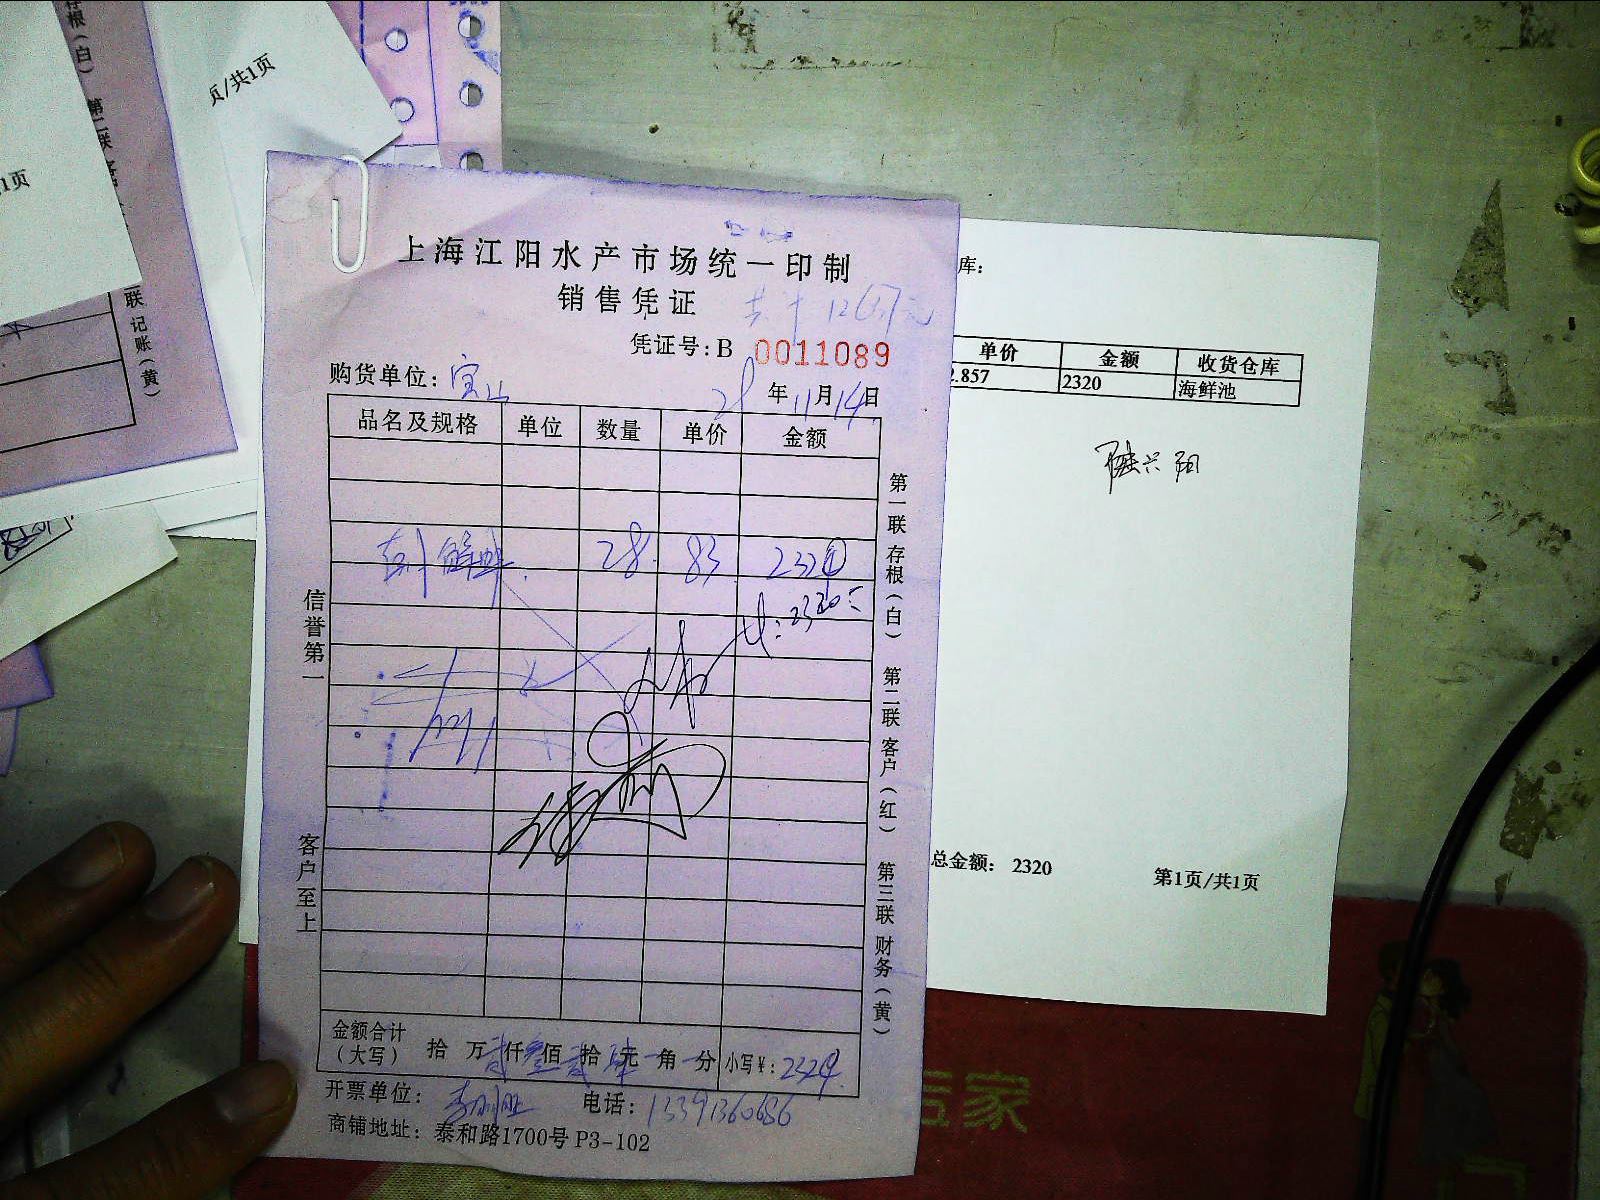 存根（白） 第二联
页/共1页
1页
联 记账（黄）
上海江阳水产市场统一印制
销售凭证
共 12637元
凭证号：B 0011089
购货单位：宝山
年 11月14日
品名及规格 单位 数量 单价 金额
28 83 2324
2320
信誉第一
客户至上
第一联 存根（白） 第二联 客户（红） 第三联 财务（黄）
金额合计（大写） 拾 万贰仟叁佰贰拾肆元 角 分 小写¥：2324
开票单位： 电话：13391360686
商铺地址：泰和路1700号P3-102
库：
单价 金额 收货仓库
2.857 2320 海鲜池
陆兴阳
总金额： 2320 第1页/共1页
家